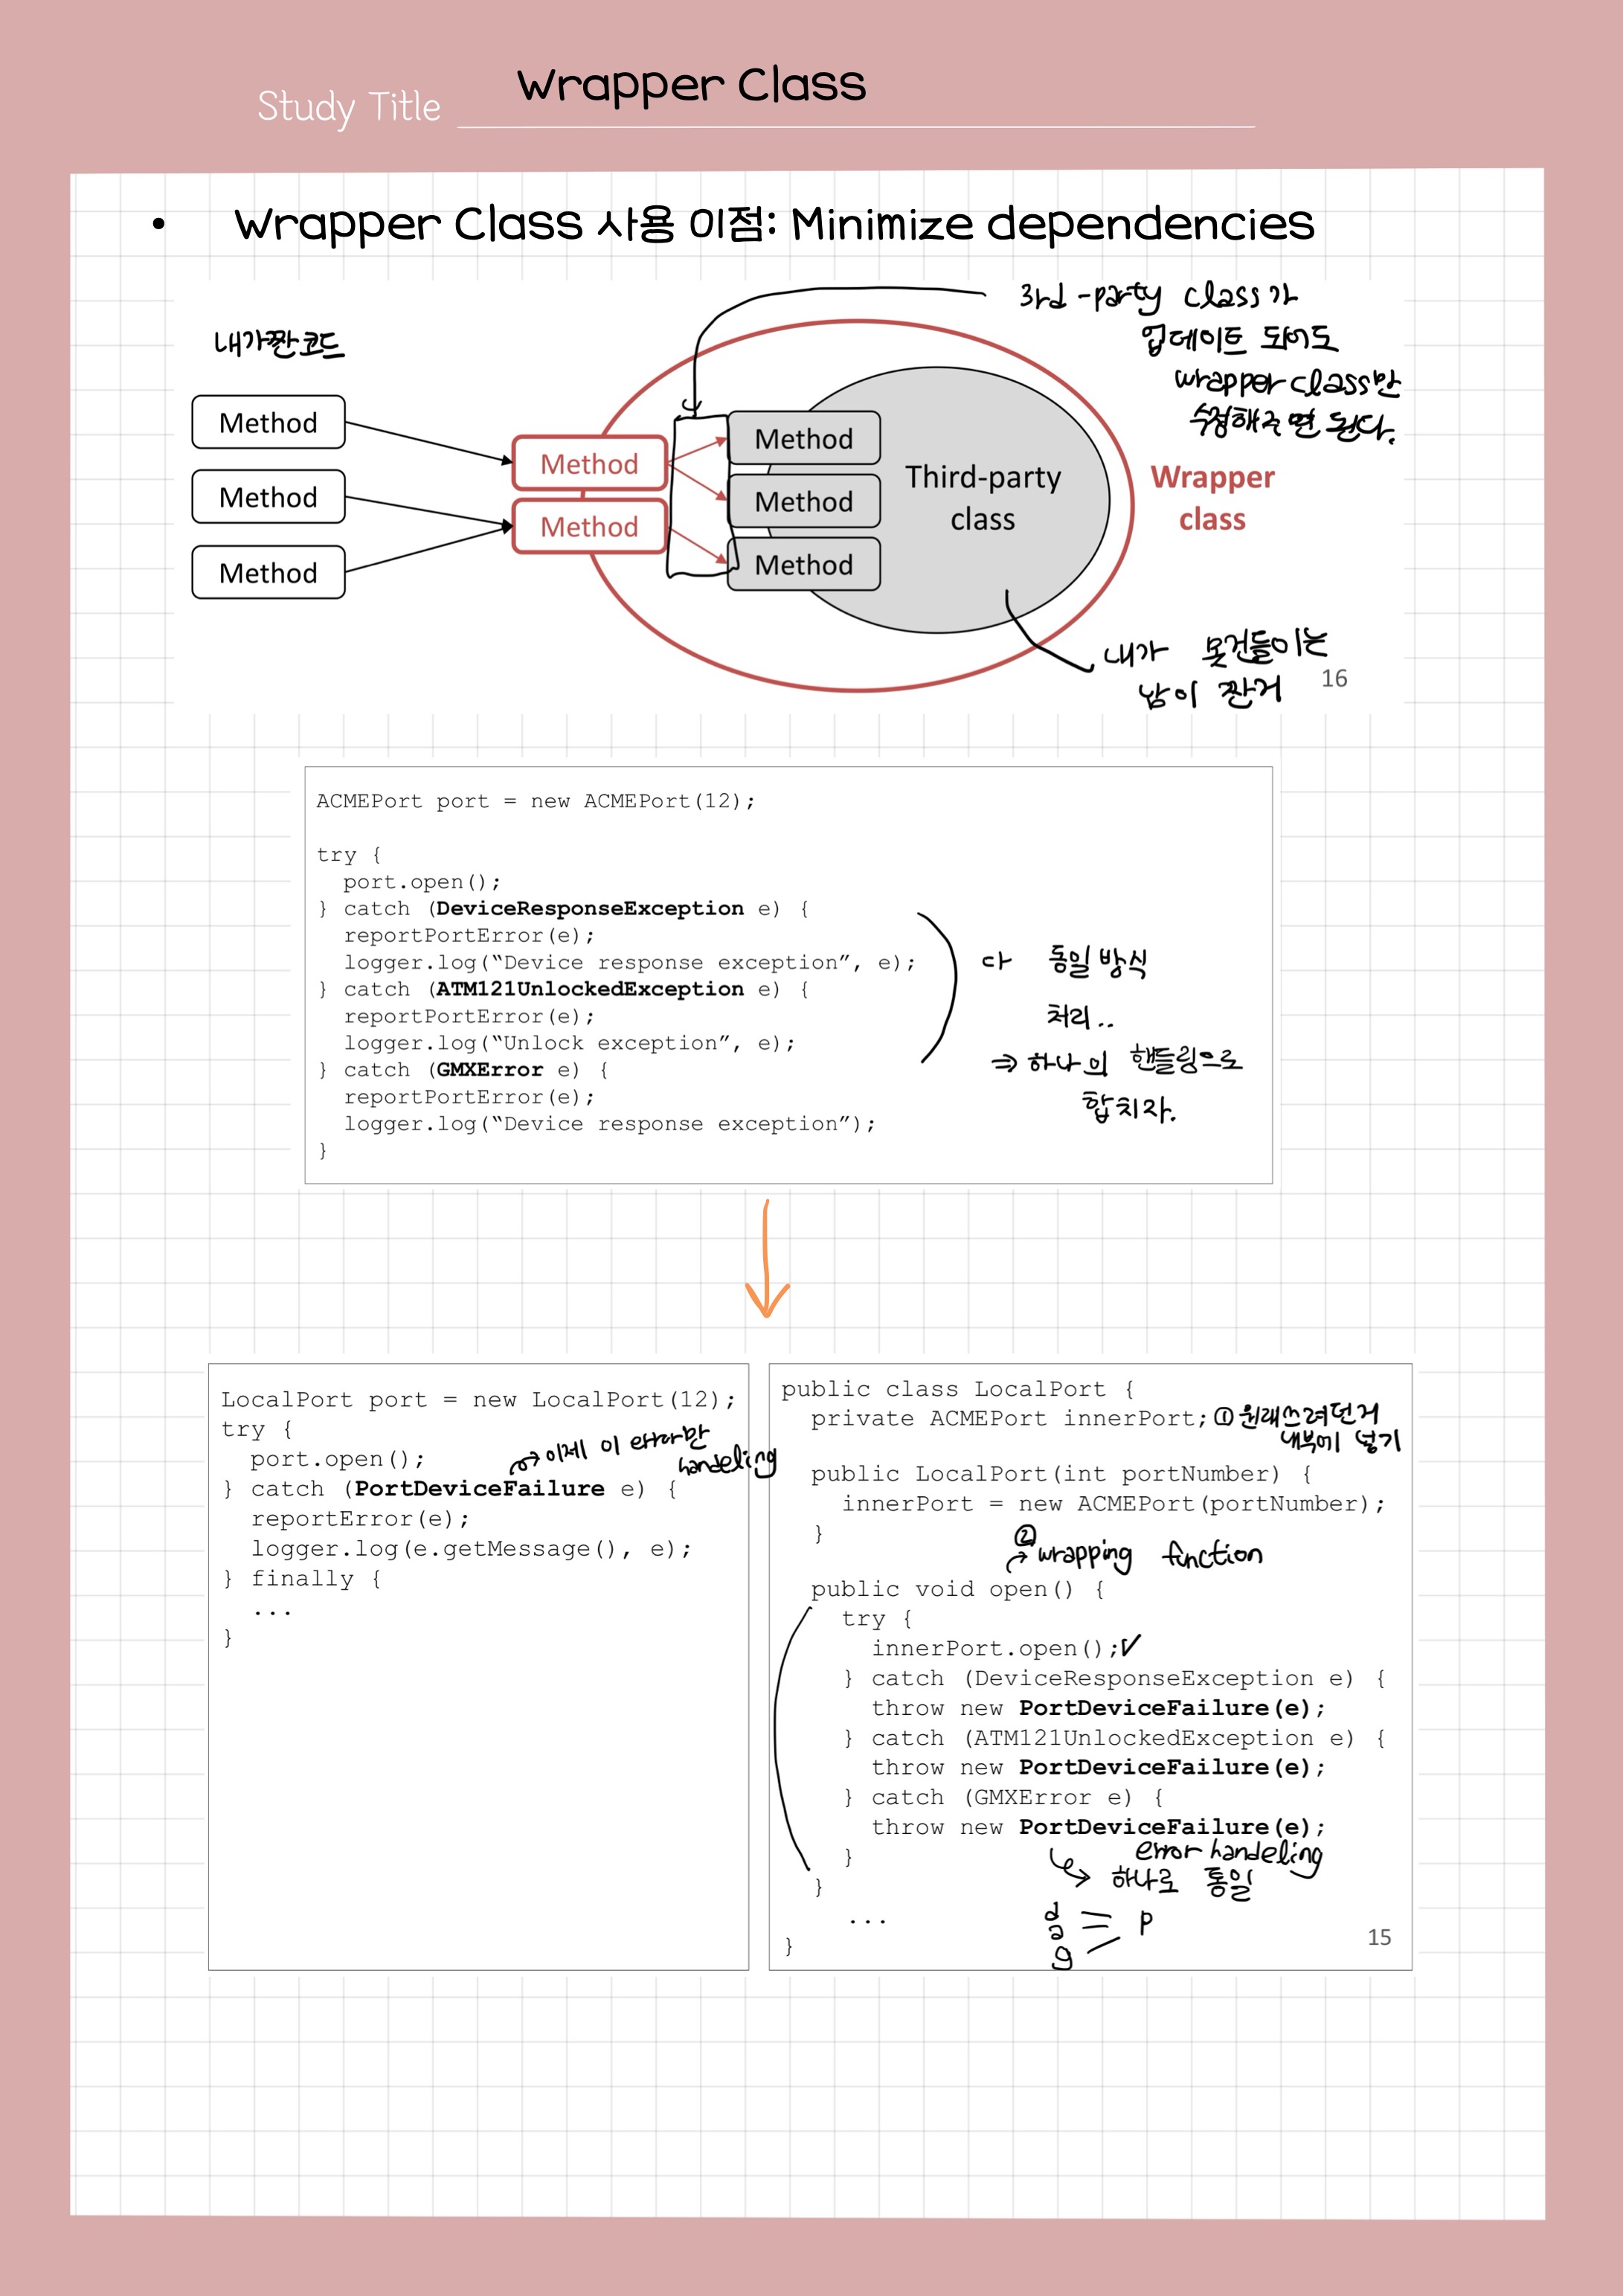 Study Title Wrapper Class
• Wrapper Class 사용 이점: Minimize dependencies
내가짠코드
3rd-party class가
업데이트 되어도
wrapper class만
수정해주면 된다.
Method
Method
Method
Method
Method
Method
Method
Method
Third-party
class
Wrapper
class
내가 못건들이는
남이 짠거
16
ACMEPort port = new ACMEPort(12);
try {
port.open();
} catch (DeviceResponseException e) {
reportPortError(e);
logger.log(“Device response exception”, e);
} catch (ATM121UnlockedException e) {
reportPortError(e);
logger.log(“Unlock exception”, e);
} catch (GMXError e) {
reportPortError(e);
logger.log(“Device response exception”);
}
다 동일 방식
처리..
⇒ 하나의 핸들링으로
합치자.
LocalPort port = new LocalPort(12);
try {
port.open();
→ 이제 이 error만
handeling
} catch (PortDeviceFailure e) {
reportError(e);
logger.log(e.getMessage(), e);
} finally {
...
}
public class LocalPort {
private ACMEPort innerPort; ① 원래쓰려던거
내부에 넣기
public LocalPort(int portNumber) {
innerPort = new ACMEPort(portNumber);
}
②
→ wrapping function
public void open() {
try {
innerPort.open();✓
} catch (DeviceResponseException e) {
throw new PortDeviceFailure(e);
} catch (ATM121UnlockedException e) {
throw new PortDeviceFailure(e);
} catch (GMXError e) {
throw new PortDeviceFailure(e);
}
error handeling
→ 하나로 통일
}
...
d
a = p
g
}
15